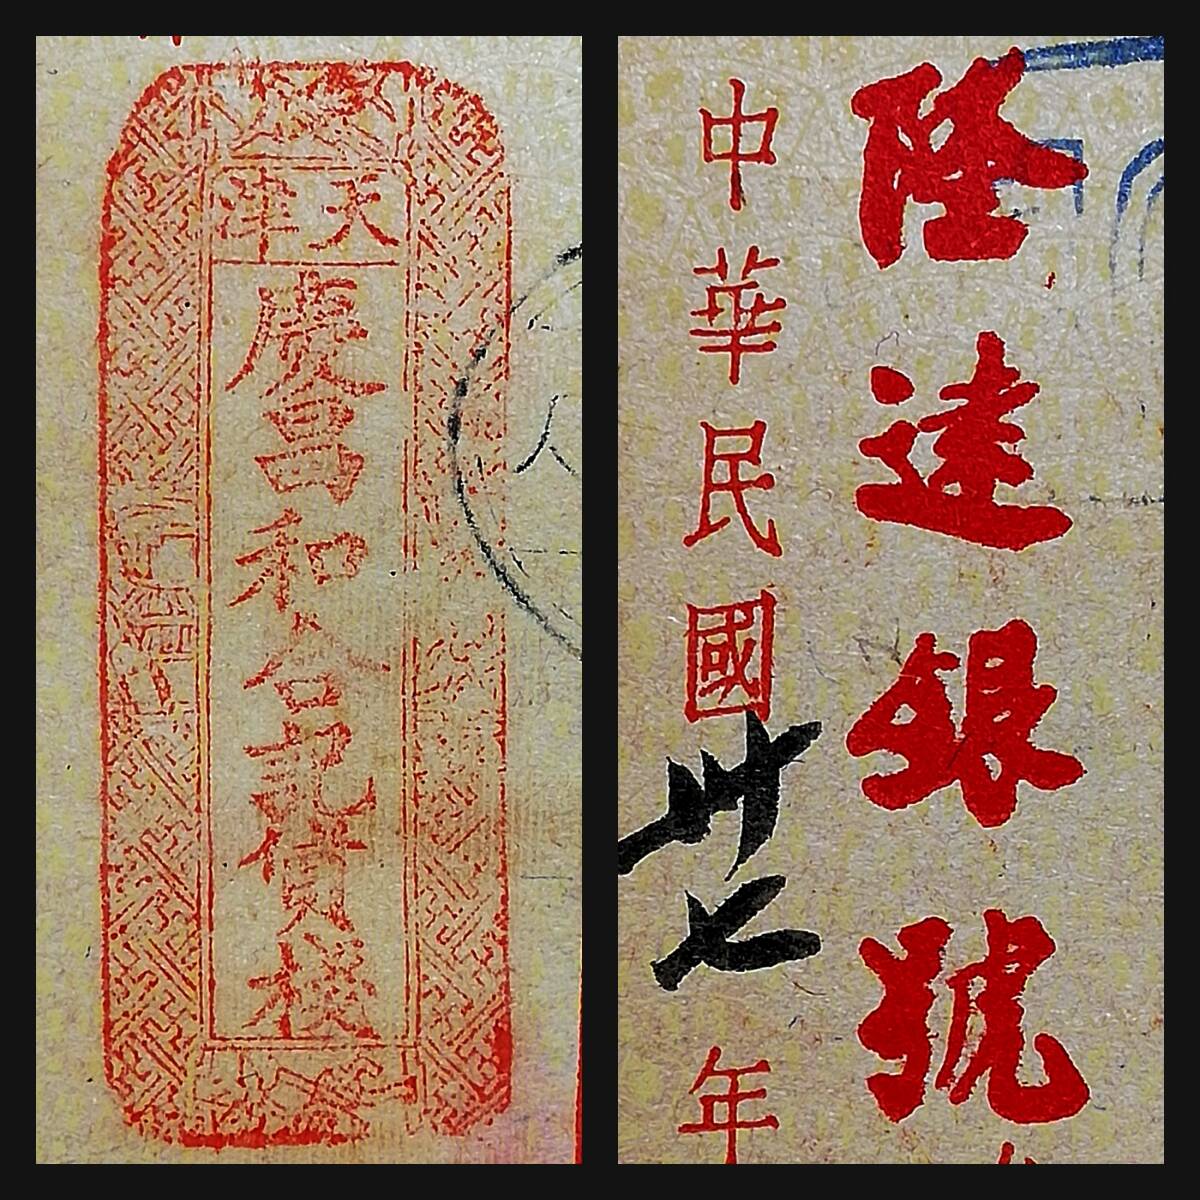 天津
慶昌和合記貨棧
隆達銀號
中華民國卅七年